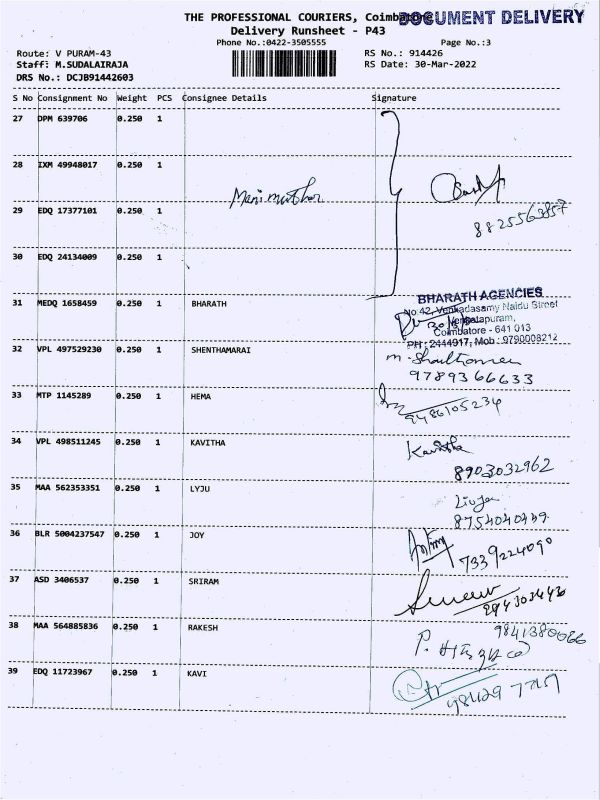 THE PROFESSIONAL COURIERS, Coimbatore
DOCUMENT DELIVERY
Delivery Runsheet - P43
Phone No.:0422-3505555
Page No.:3
Route: V PURAM-43
RS No.: 914426
Staff: M.SUDALAIRAJA
RS Date: 30-Mar-2022
DRS No.: DCJB91442603
S No Consignment No Weight PCS Consignee Details Signature
27 DPM 639706 0.250 1
28 IXM 49948017 0.250 1
Manimuthu
8825563857
29 EDQ 17377101 0.250 1
30 EDQ 24134009 0.250 1
31 MEDQ 1658459 0.250 1 BHARATH
BHARATH AGENCIES
No:42, Venkadasamy Naidu Street
Venkatapuram,
Coimbatore - 641 013
PH : 2444917, Mob : 9790008212
32 VPL 497529230 0.250 1 SHENTHAMARAI
9789366633
33 MTP 1145289 0.250 1 HEMA
9486105234
34 VPL 498511245 0.250 1 KAVITHA
Kavitha
8903032962
35 MAA 562353351 0.250 1 LYJU
8754040449
36 BLR 5004237547 0.250 1 JOY
7339224090
37 ASD 3406537 0.250 1 SRIRAM
38 MAA 564885836 0.250 1 RAKESH
9841380066
39 EDQ 11723967 0.250 1 KAVI